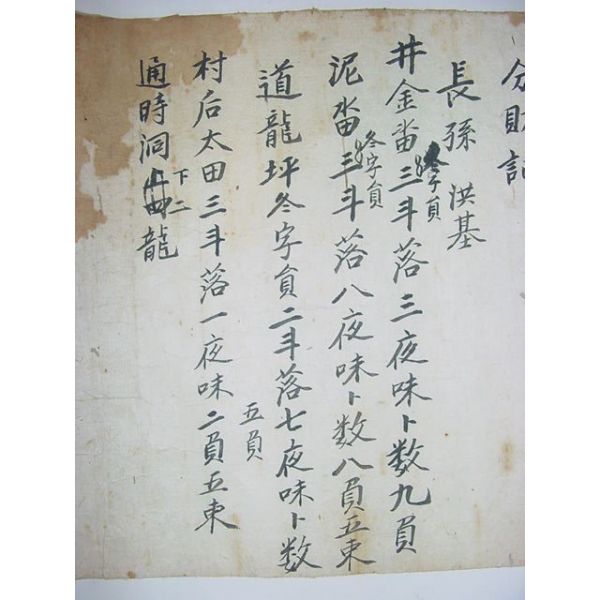 分財記
長孫洪基
井金畓冬字負三斗落三夜味卜数九負
泥畓冬字負三斗落八夜味卜数八負五束
道龍坪冬字負二斗落七夜味卜数
五負
村后太田三斗落一夜味二負五束
通時洞下二龍